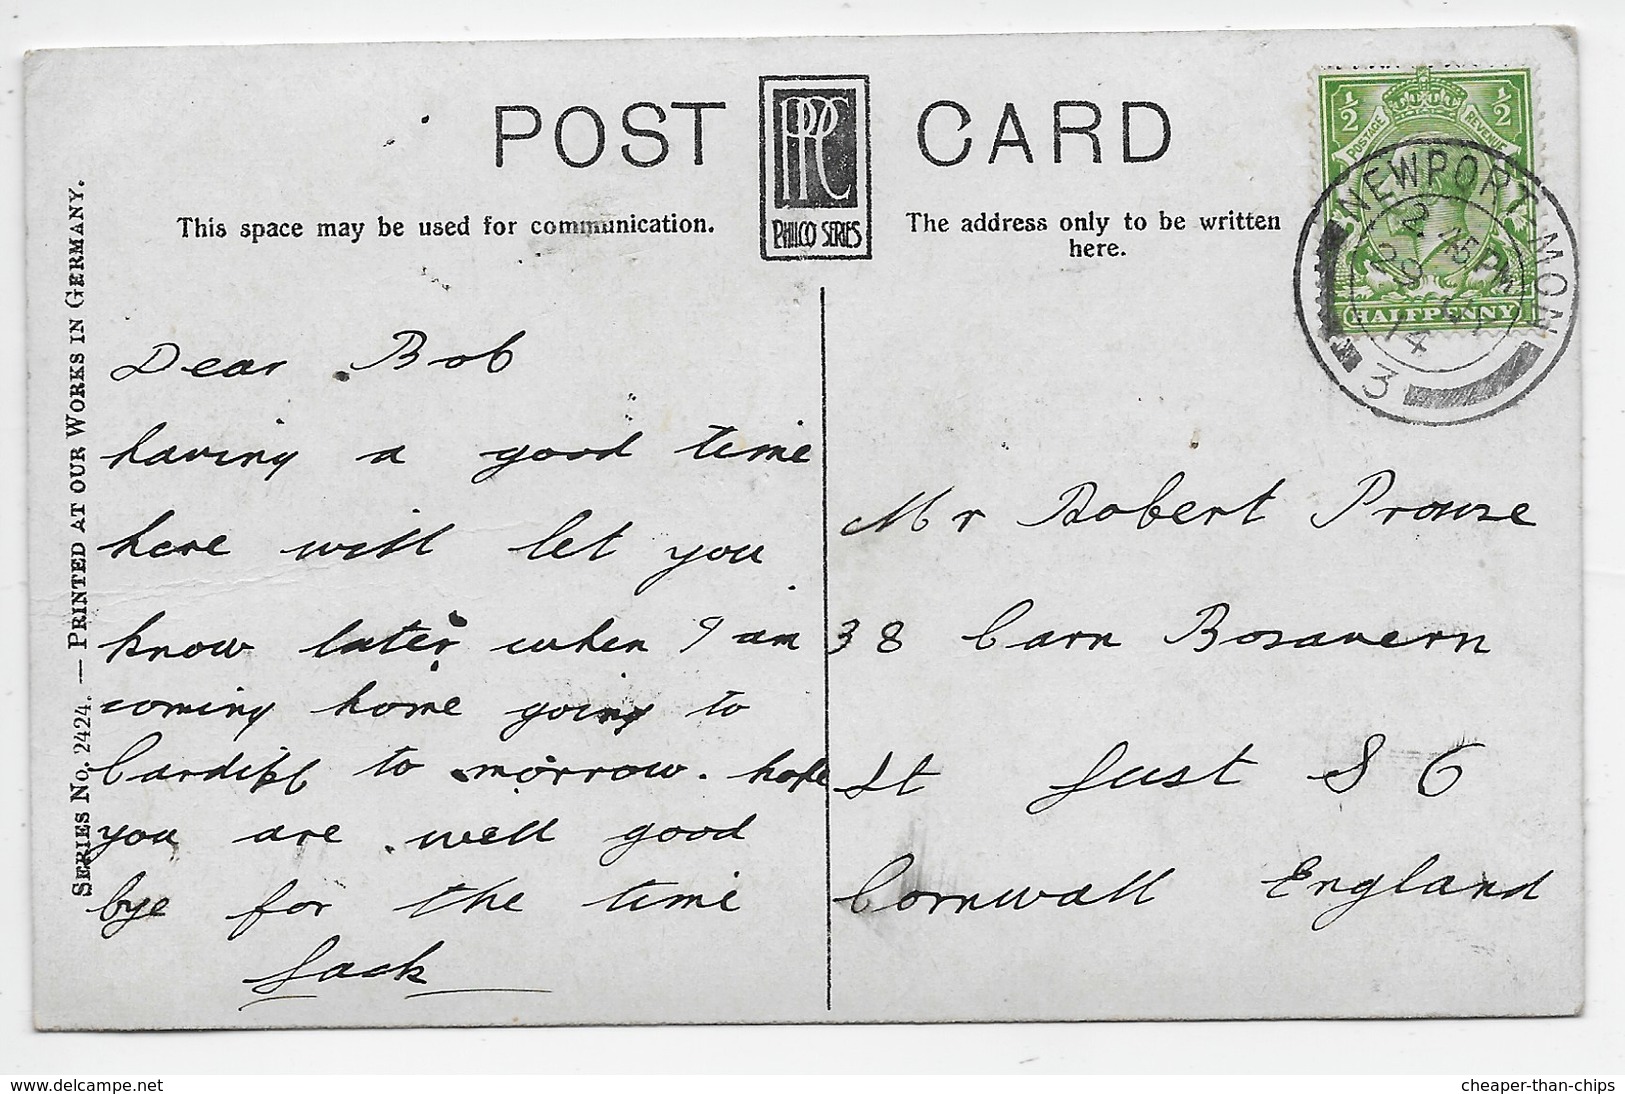 POST CARD
PPC
PHILCO SERIES
This space may be used for communication.
The address only to be written
here.
SERIES No. 2424. — PRINTED AT OUR WORKS IN GERMANY.
1/2 1/2
POSTAGE REVENUE
HALFPENNY
NEWPORT MON
2 15 PM
14
3
Dear Bob
having a good time
here will let you
know later when I am
coming home going to
Cardiff to morrow. hope
you are well good
bye for the time
Jack
Mr Robert Prowse
38 Carn Bosavern
St Just S 6
Cornwall England
www.delcampe.net
cheaper-than-chips